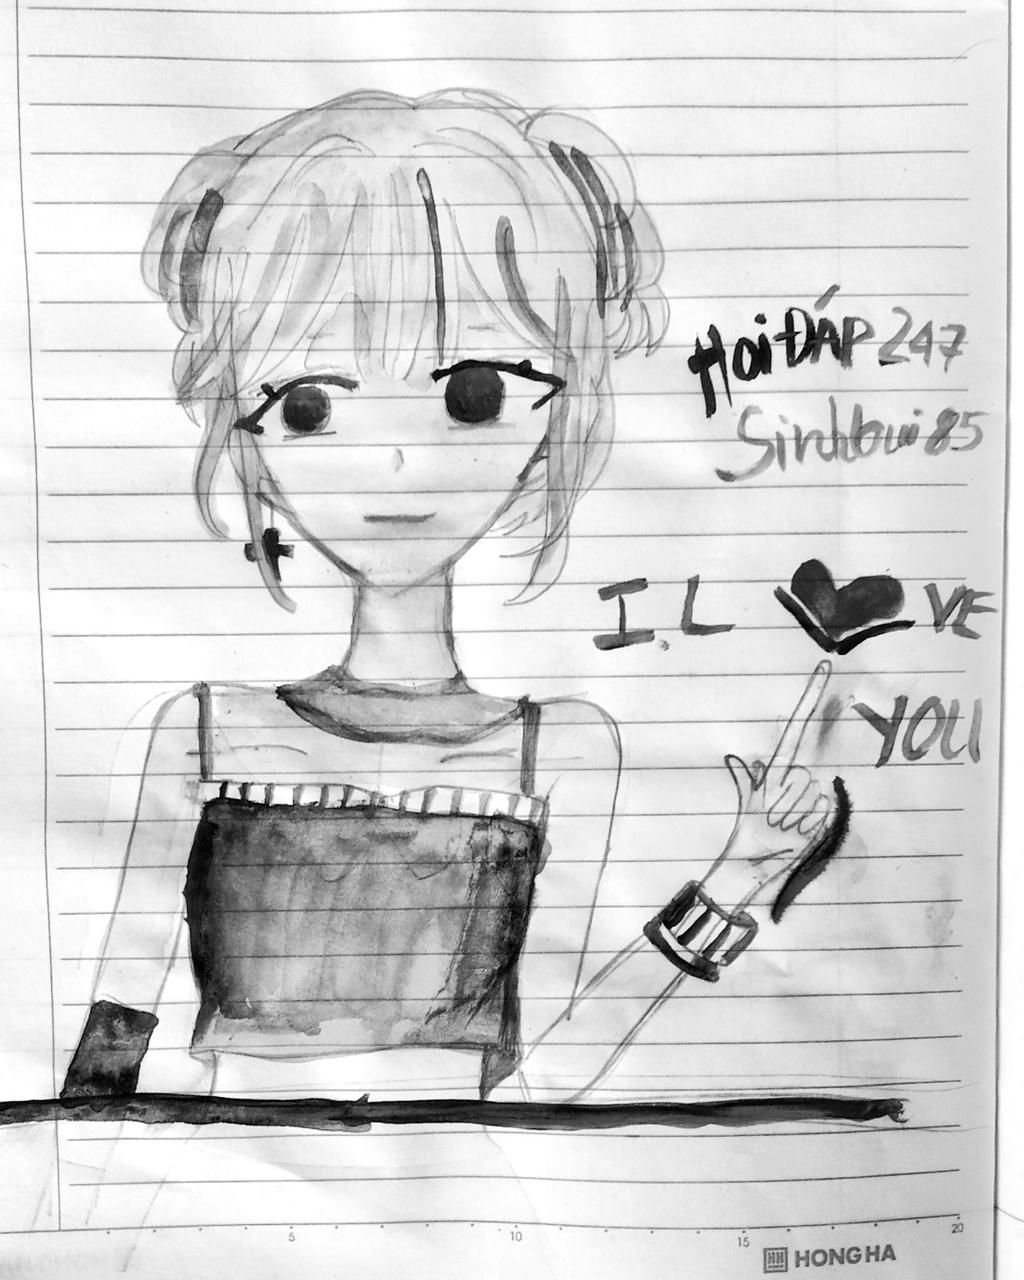 HoiĐÁP 247
Sinhbui85
I L ❤ VE
YOU
5 10 15 20
HH HONG HA